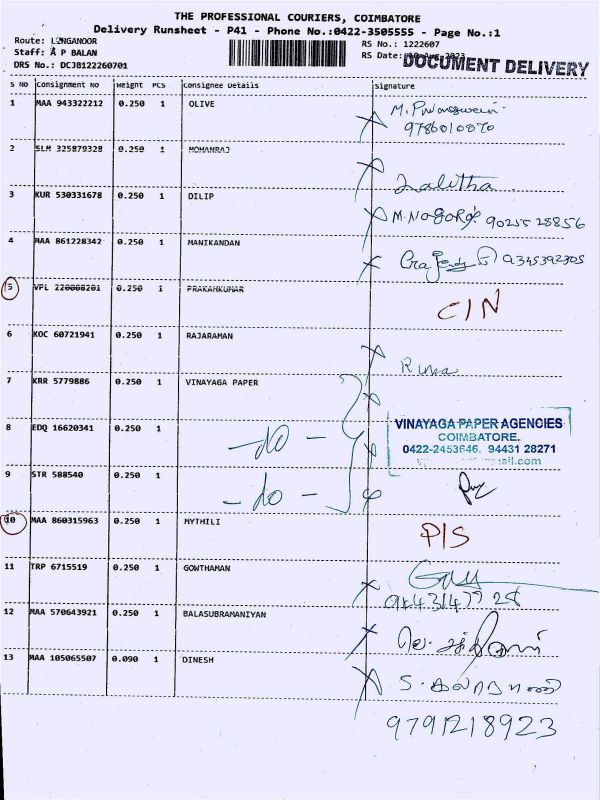 THE PROFESSIONAL COURIERS, COIMBATORE
Delivery Runsheet - P41 - Phone No.:0422-3505555 - Page No.:1
Route: LINGANOOR
Staff: A P BALAN
DRS No.: DCJB122260701
RS No.: 1222607
RS Date: 10-Aug-2023
DOCUMENT DELIVERY
S NO Consignment No Weight PCS Consignee Details Signature
1 MAA 943322212 0.250 1 OLIVE
9786010070
2 SLM 325879328 0.250 1 MOHANRAJ Lalitha
3 KUR 530331678 0.250 1 DILIP 90255 28856
4 MAA 861228342 0.250 1 MANIKANDAN 9345392305
5 VPL 220008201 0.250 1 PRAKAHKUMAR C/N
6 KOC 60721941 0.250 1 RAJARAMAN
7 KRR 5779886 0.250 1 VINAYAGA PAPER
8 EDQ 16620341 0.250 1 -do-
VINAYAGA PAPER AGENCIES
COIMBATORE.
0422-2453646, 94431 28271
9 STR 588540 0.250 1 -do-
10 MAA 860315963 0.250 1 MYTHILI P/S
11 TRP 6715519 0.250 1 GOWTHAMAN
12 MAA 570643921 0.250 1 BALASUBRAMANIYAN
13 MAA 105065507 0.090 1 DINESH
9791218923